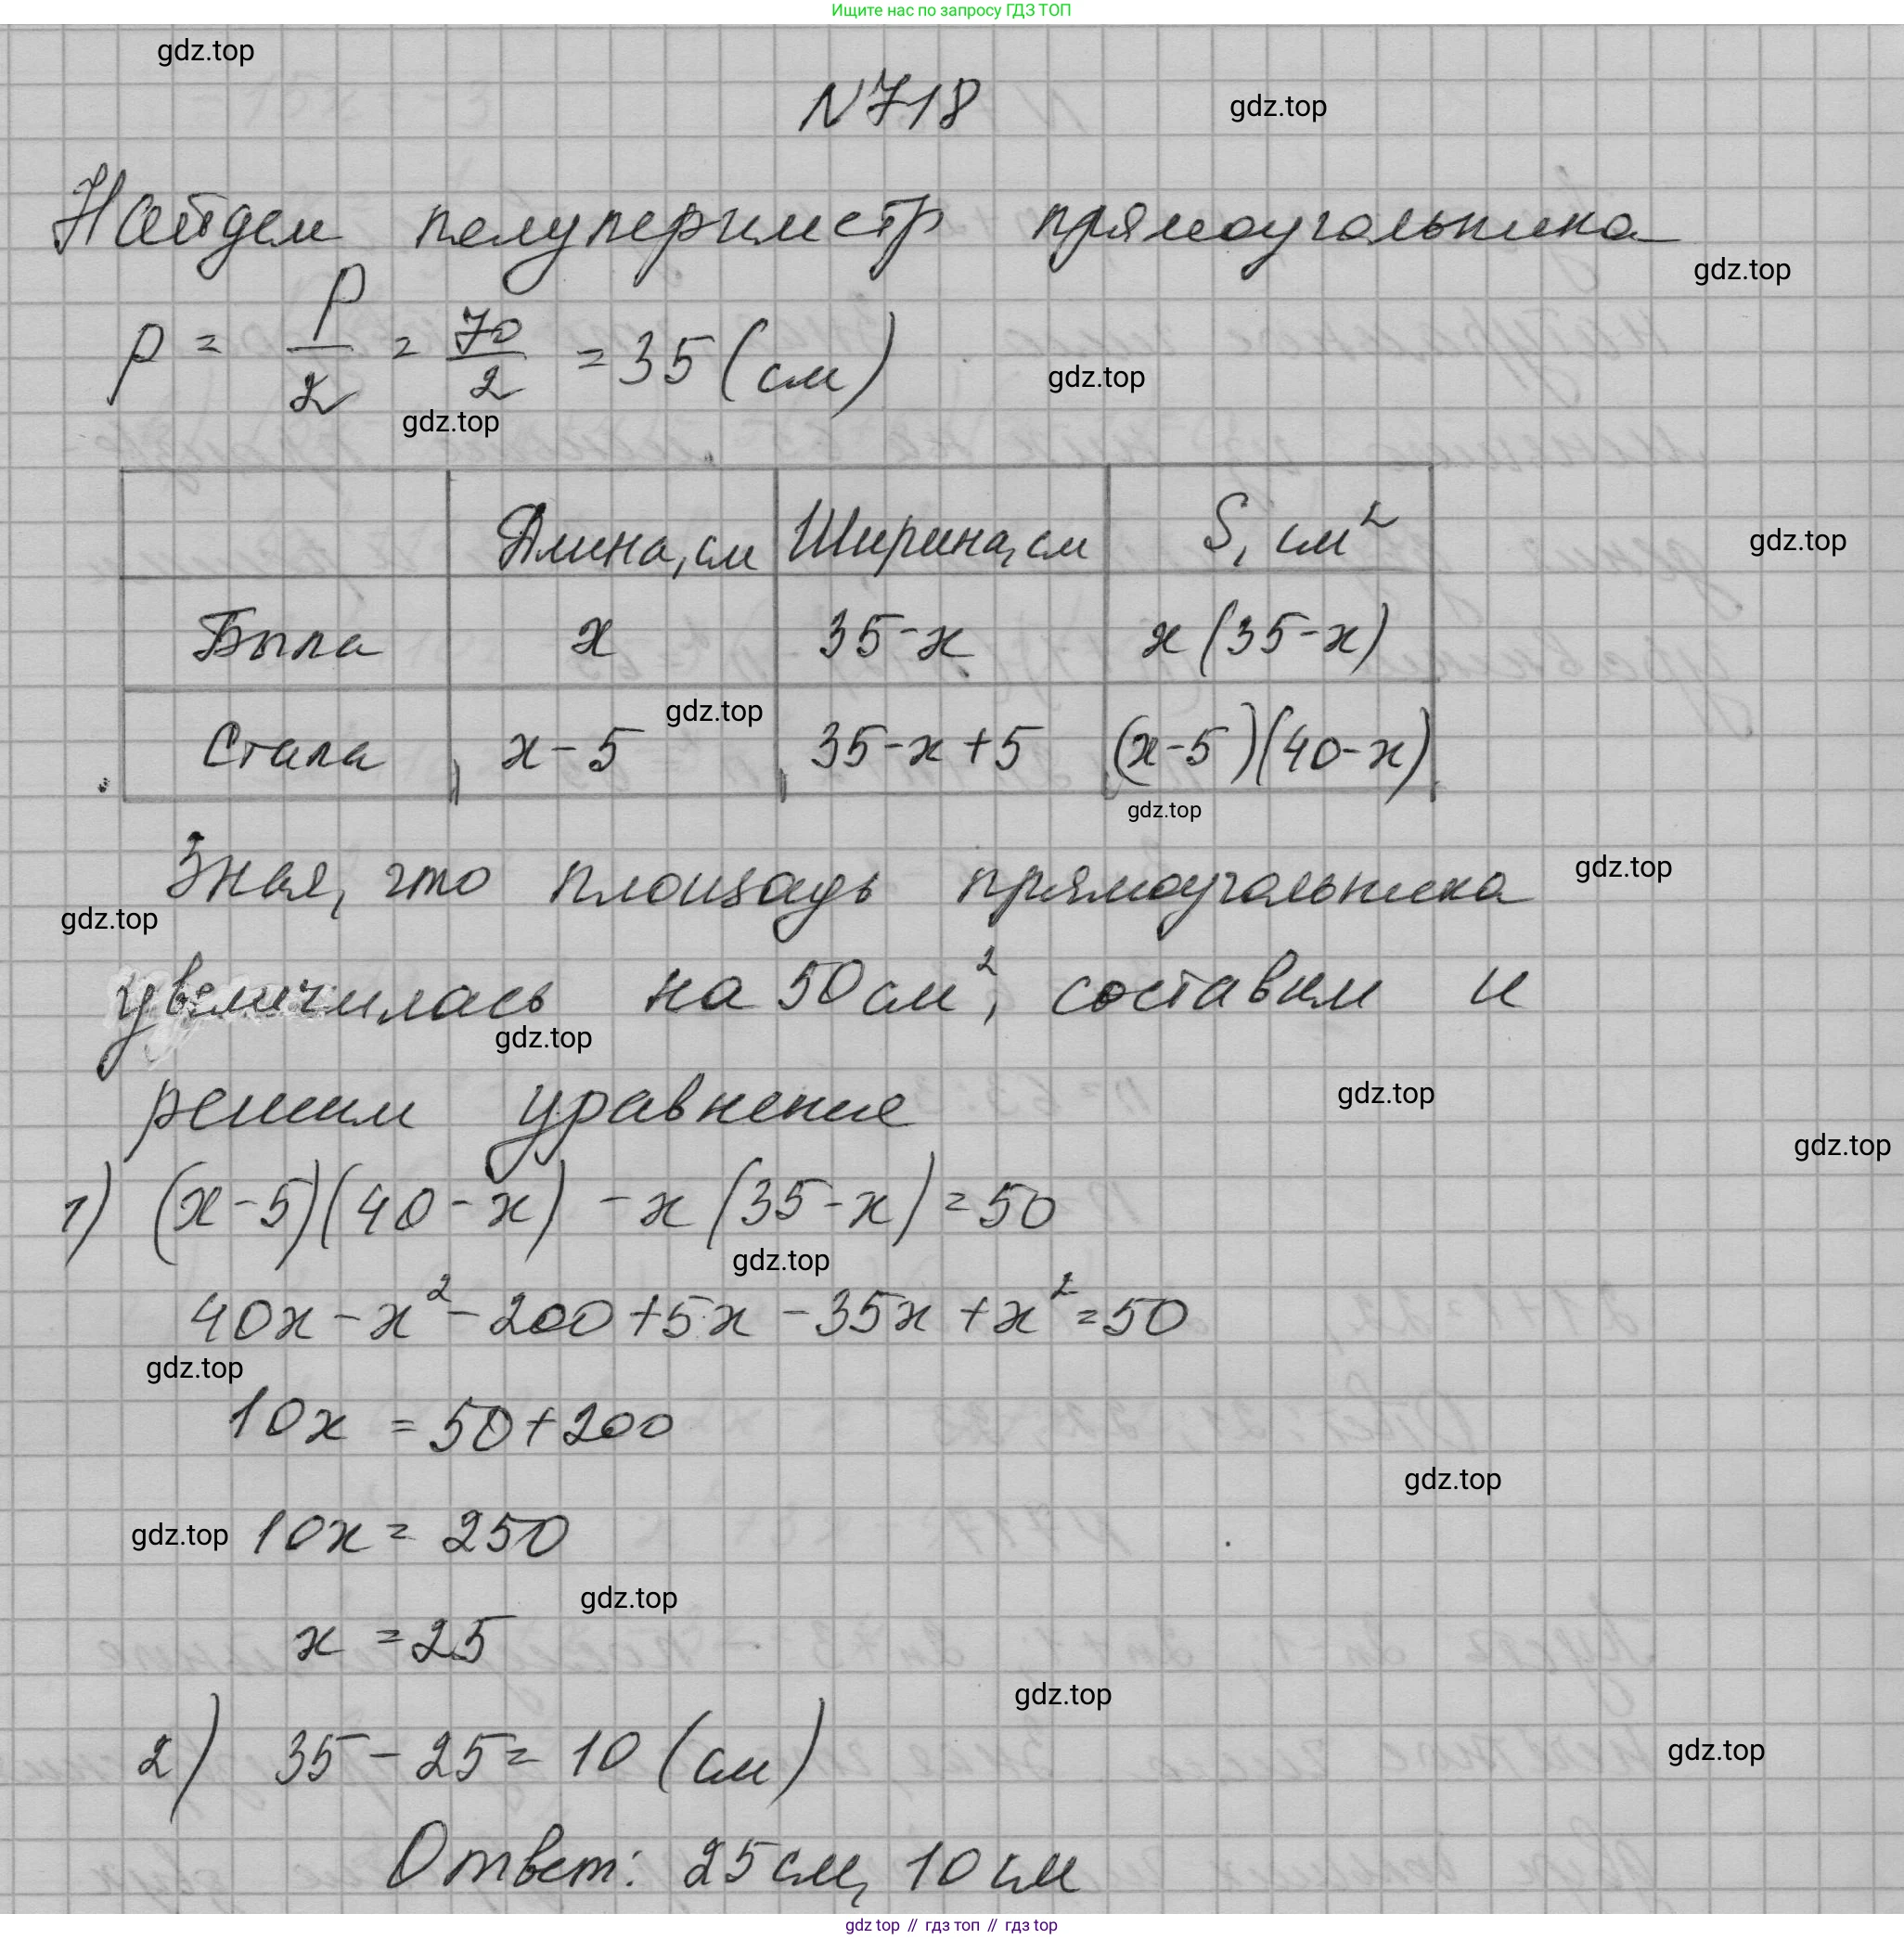 Ищите нас по запросу ГДЗ ТОП
gdz.top
N718
gdz.top
Найдем полупериметр прямоугольника
gdz.top
p = P/2 = 70/2 = 35 (см)
gdz.top
gdz.top
Длина, см Ширина, см S, см²
gdz.top
Была x 35-x x(35-x)
gdz.top
Стала x-5 35-x+5 (x-5)(40-x)
gdz.top
Зная, что площадь прямоугольника
gdz.top
gdz.top
увеличилась на 50 см², составим и
gdz.top
решим уравнение
gdz.top
gdz.top
1) (x-5)(40-x) - x(35-x) = 50
gdz.top
40x - x² - 200 + 5x - 35x + x² = 50
gdz.top
10x = 50 + 200
gdz.top
gdz.top 10x = 250
gdz.top
x = 25
gdz.top
2) 35 - 25 = 10 (см)
gdz.top
Ответ: 25 см, 10 см
gdz top // гдз топ // гдз top